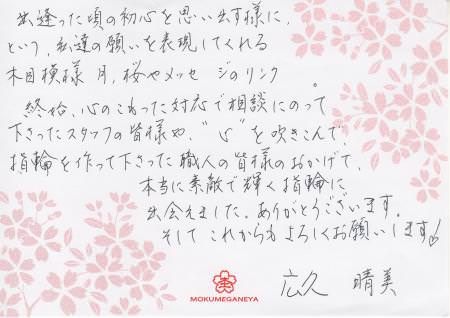 出逢った頃の初心を思い出す様に、
という、私達の願いを表現してくれる
木目模様 月、桜やメッセージのリンク
。
終始、心のこもった対応で相談にのって
下さったスタッフの皆様や、"心"を吹きこんで
指輪を作って下さった職人の皆様のおかげで、
本当に素敵で輝く指輪に、
出会えました。ありがとうございます。
そしてこれからもよろしくお願いします♡
広久 晴美
MOKUMEGANEYA